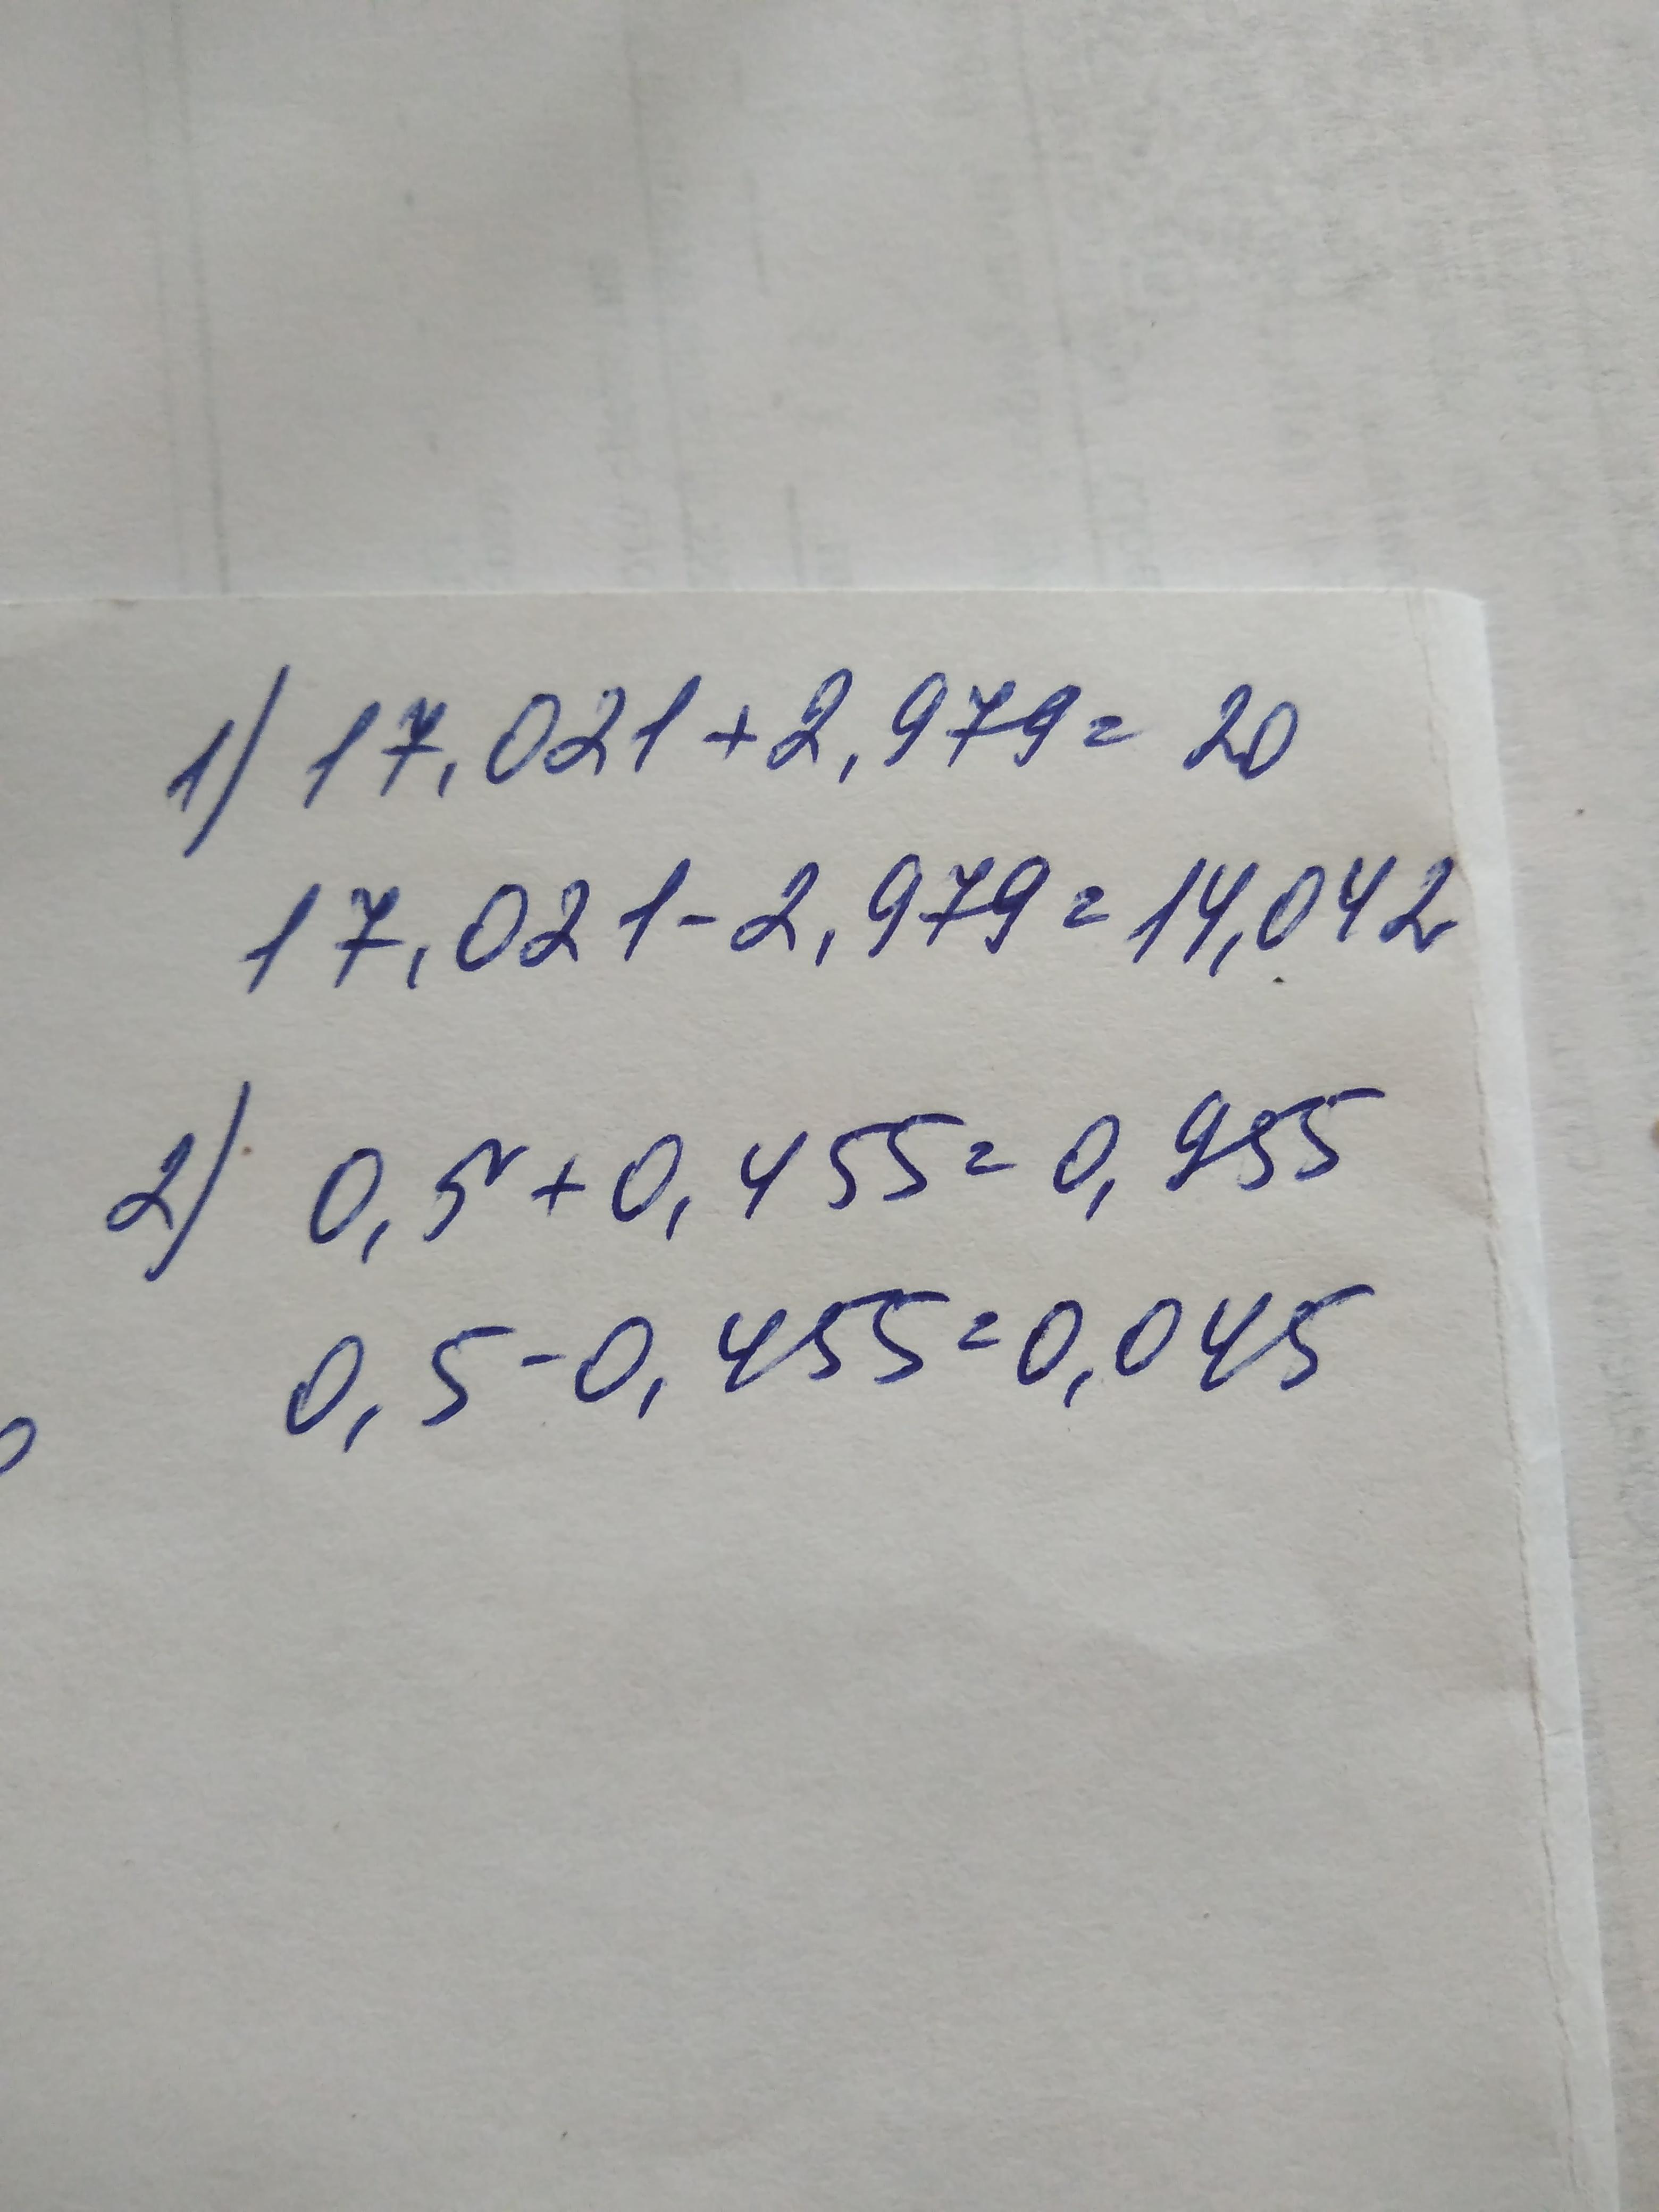 1) 17,021+2,979=20
17,021-2,979=14,042
2) 0,5+0,455=0,955
0,5-0,455=0,045